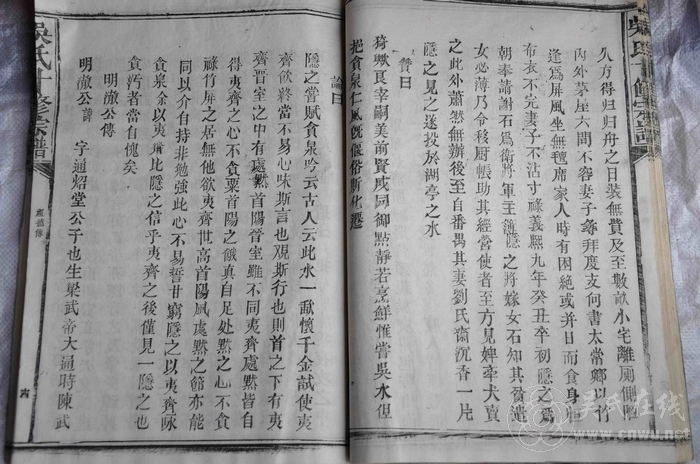 久方得归归舟之日装無貲及至數畝小宅離厠側陋
内外茅屋六間不容妻子尋拜度支向書太常鄉以竹
逢爲屏風坐無氊席家人時有困絶或并日而食身恒
布衣不完妻子不沾寸祿義熙九年癸丑卒初隱之爲
朝奉請謝石爲衛將軍主簿隱之將嫁女石知其貧遣
女必薄乃令移厨帳助其經營使者至方見婢牽犬賣
之此外蕭然無辦後至自番禺其妻劉氏齎沉香一片
隱之見之遂投於湖亭之水
贊曰
猗歟良宰嗣美前賢威同御點靜若烹鮮惟嘗吳水但
挹貪泉仁風旣偃俗斯化遷
論曰
隱之嘗賦貪泉吟云古人云此水一歃懷千金試使夷
齊飲終當不易心味斯言也覌斯行也則首之下有夷
齊晋室之中有處黙首陽晉室雖不同夷齊處黙皆自
得夷齊之心不食粟首陽之餓真自足處黙之心不食
祿竹屏之居無他欲夷齊世高首陽風處黙之節亦能
同以介自持非勉強此心不易誓甘窮隱之以夷齊咏
貪泉余以夷齊比隱之信乎夷齊之後僅見一隱之也
貪汚者當自愧矣
明澈公傳
明澈公諱 字通炤堂公子也生梁武帝大通時陳武
吳氏十修宗譜
吳氏十修宗譜
吴氏在线
www.cnwu.net